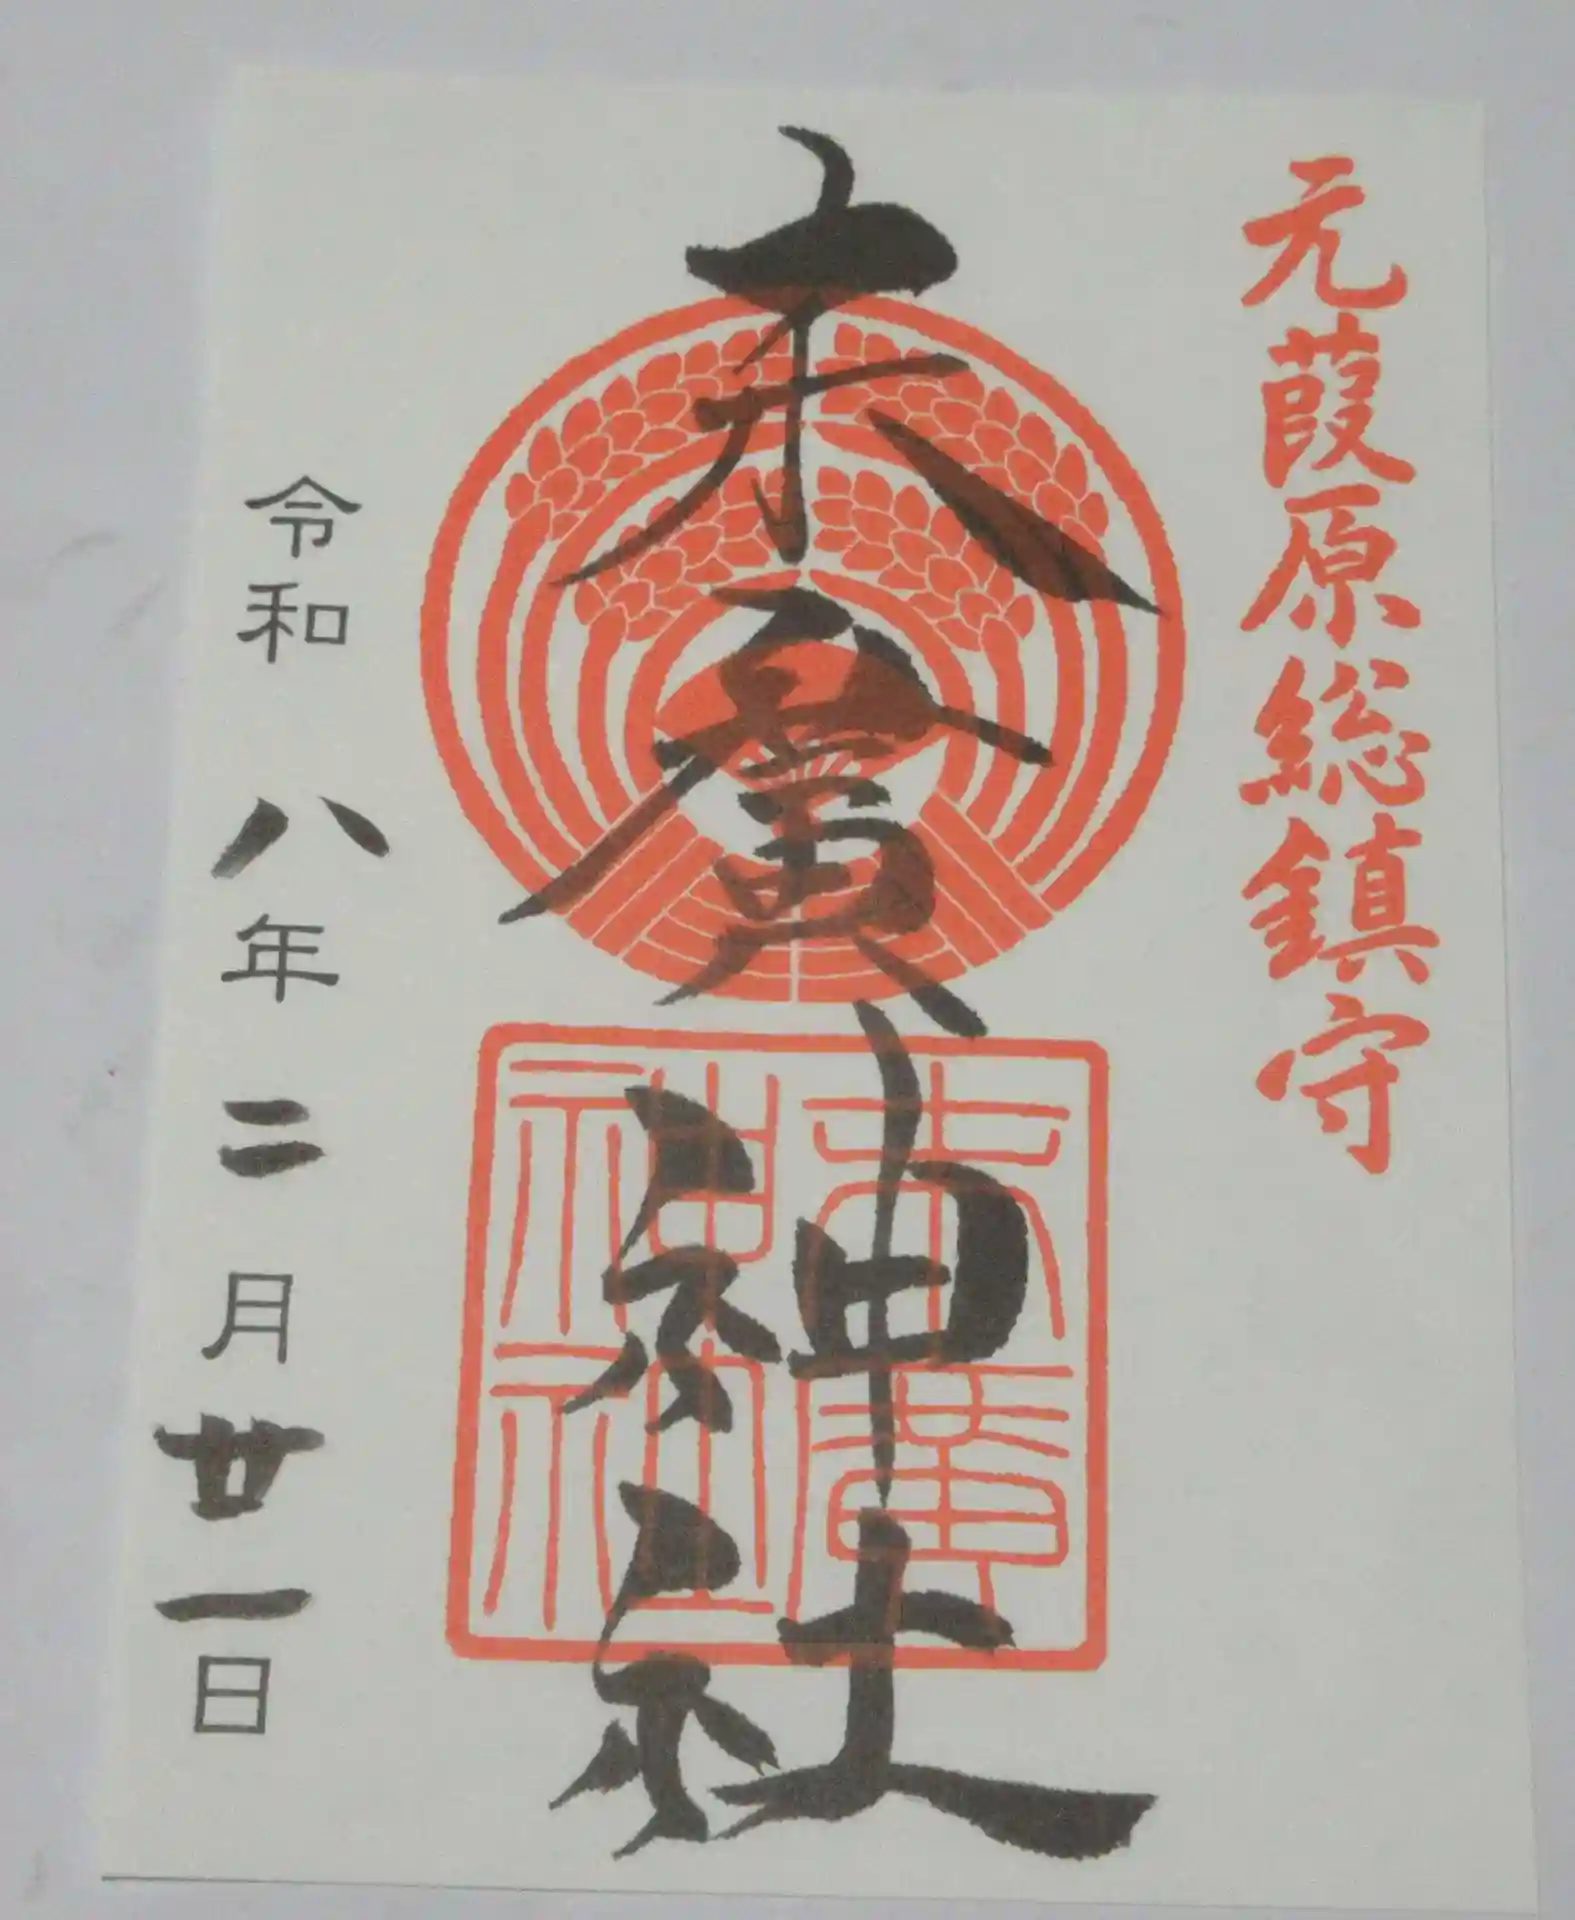 元葭原総鎮守
末廣神社
末廣神社
令和八年二月廿一日